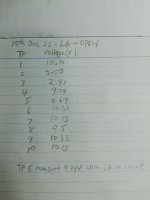 15th Dec 22 - L6 - OPEN
TP Voltage(V)
1 10.16
2 2.50
3 2.91
4 9.79
5 0.67
6 10.33
7 10.13
8 9.5
9 10.33
10 10.13
TP 5 measure 9.48V with L6 in circuit